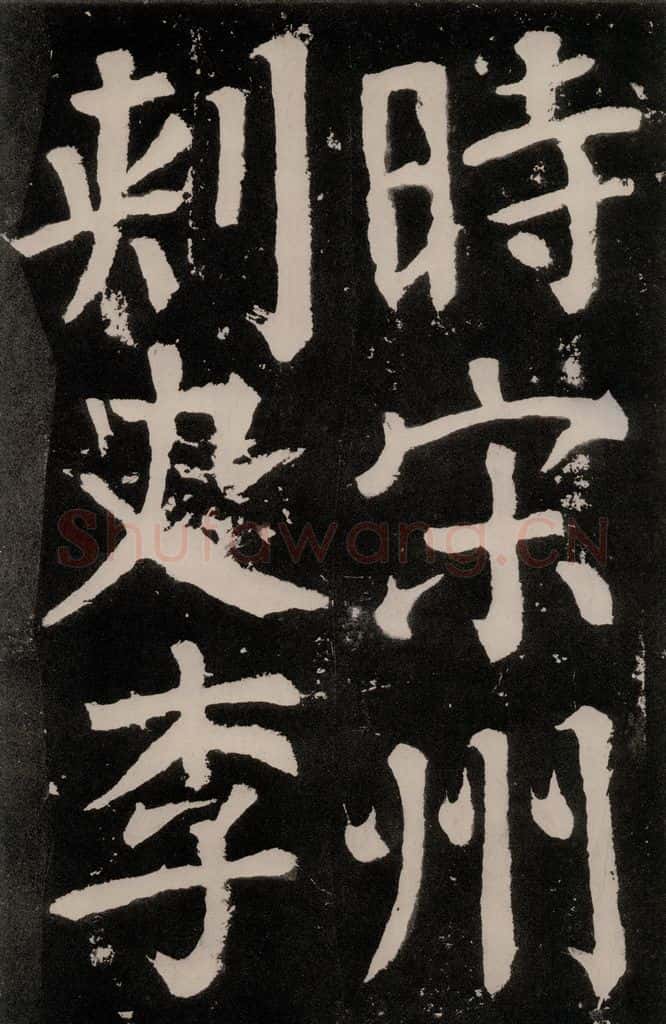 時宋州
刺史李
Shufawang.CN